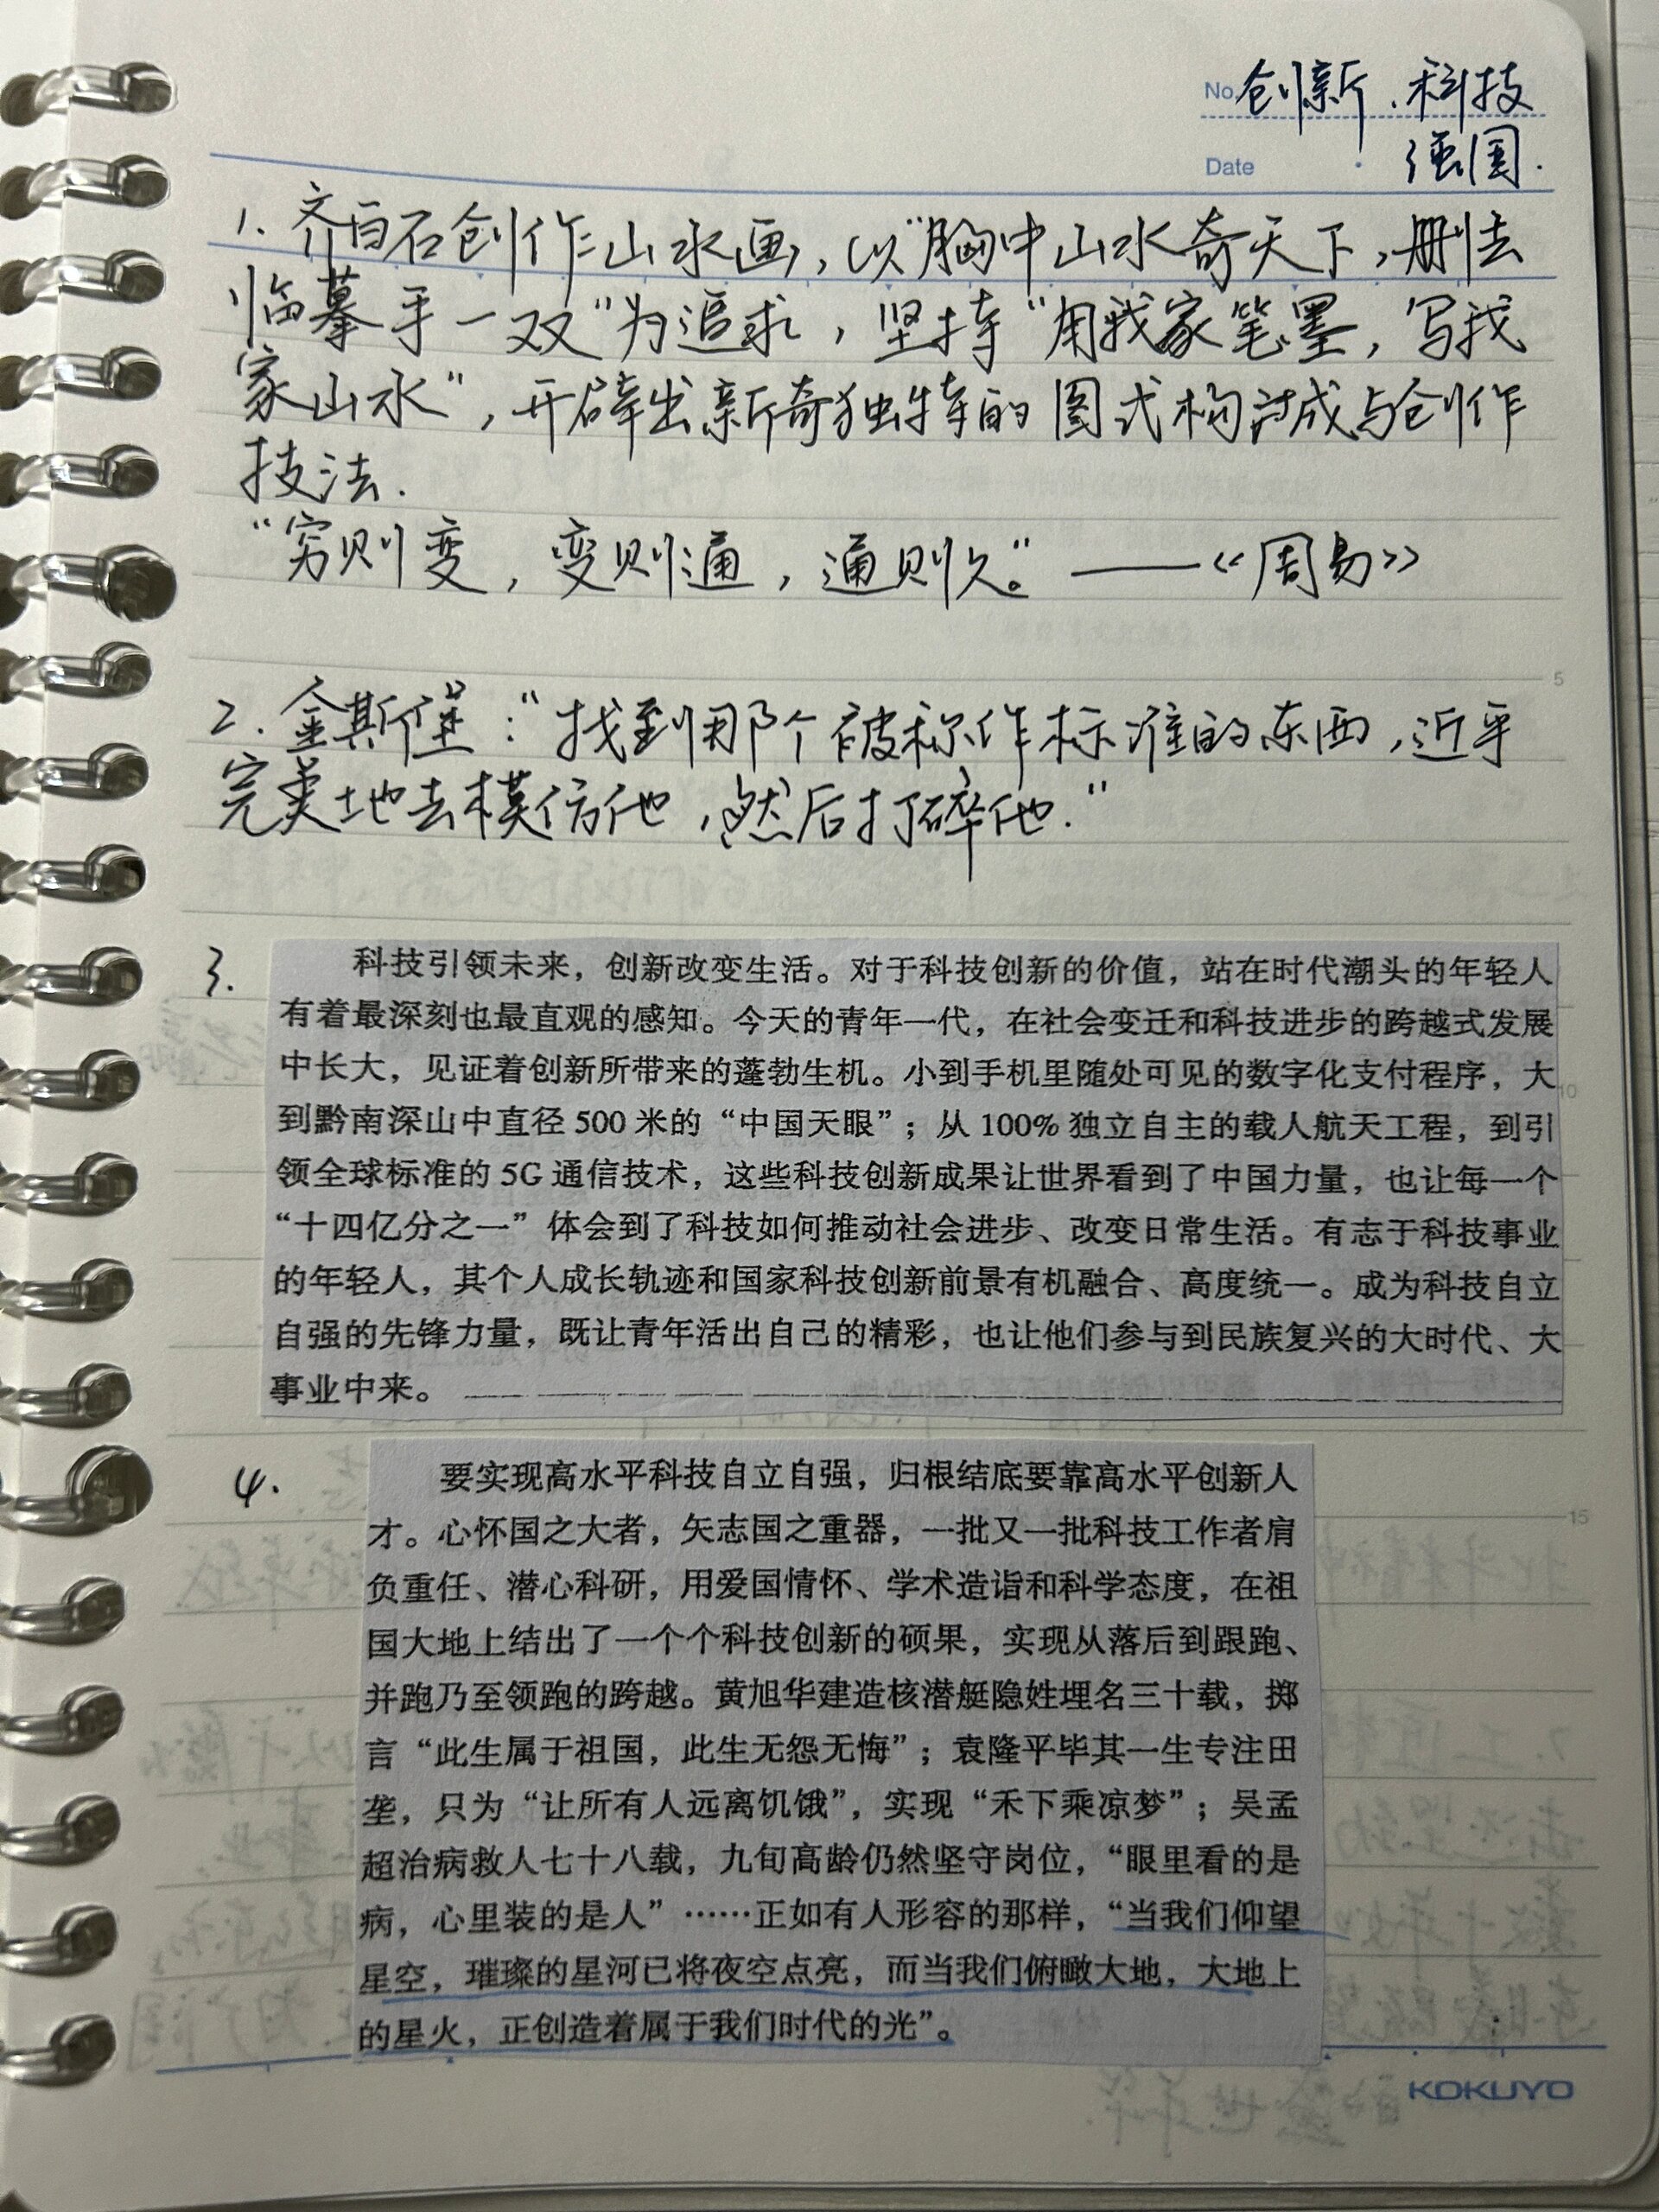 No. 创新、科技
Date 强国.
1. 齐白石创作山水画，以“胸中山水奇天下，删去
临摹手一双”为追求，坚持“用我家笔墨，写我
家山水”，开辟出新奇独特的图式构成与创作
技法.
“穷则变，变则通，通则久。”——《周易》
5
2. 金斯堡：“找到那个被称作标准的东西，近乎
完美地去模仿他，然后打碎他.”
3. 科技引领未来，创新改变生活。对于科技创新的价值，站在时代潮头的年轻人
有着最深刻也最直观的感知。今天的青年一代，在社会变迁和科技进步的跨越式发展
中长大，见证着创新所带来的蓬勃生机。小到手机里随处可见的数字化支付程序，大
10
到黔南深山中直径 500 米的“中国天眼”；从 100% 独立自主的载人航天工程，到引
领全球标准的 5G 通信技术，这些科技创新成果让世界看到了中国力量，也让每一个
“十四亿分之一”体会到了科技如何推动社会进步、改变日常生活。有志于科技事业
的年轻人，其个人成长轨迹和国家科技创新前景有机融合、高度统一。成为科技自立
自强的先锋力量，既让青年活出自己的精彩，也让他们参与到民族复兴的大时代、大
事业中来。
4. 要实现高水平科技自立自强，归根结底要靠高水平创新人
才。心怀国之大者，矢志国之重器，一批又一批科技工作者肩
15
负重任、潜心科研，用爱国情怀、学术造诣和科学态度，在祖
国大地上结出了一个个科技创新的硕果，实现从落后到跟跑、
并跑乃至领跑的跨越。黄旭华建造核潜艇隐姓埋名三十载，掷
言“此生属于祖国，此生无怨无悔”；袁隆平毕其一生专注田
垄，只为“让所有人远离饥饿”，实现“禾下乘凉梦”；吴孟
超治病救人七十八载，九旬高龄仍然坚守岗位，“眼里看的是
病，心里装的是人”……正如有人形容的那样，“当我们仰望
星空，璀璨的星河已将夜空点亮，而当我们俯瞰大地，大地上
的星火，正创造着属于我们时代的光”。
KOKUYO